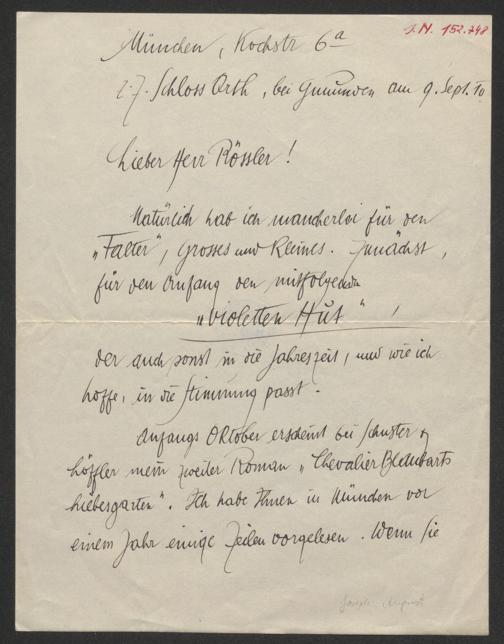 J.N. 152.748
München, Kochstr 6a
z. Z. Schloss Orth, bei Gmunden am 9. Sept. 10
Lieber Herr Rössler!
Natürlich hab ich mancherlei für den
„Falter", Grosses und Kleines. Zunächst,
für den Anfang den mitfolgenden
„violetten Hut"!
der auch sonst in die Jahreszeit, und wie ich
hoffe, in die Stimmung passt.
Anfangs Oktober erscheint bei Schuster &
Löffler mein zweiter Roman „Chevalier Blaubarts
Liebesgarten". Ich habe Ihnen in München vor
einem Jahr einige Zeilen vorgelesen. Wenn Sie
Joseph August